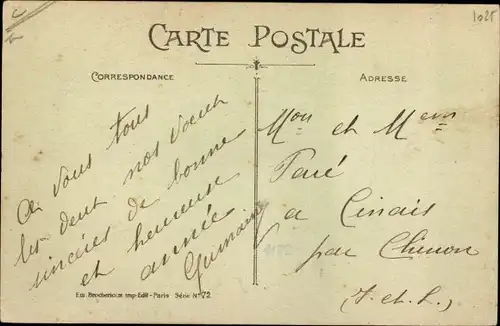 1025
CARTE POSTALE
CORRESPONDANCE
ADRESSE
A vous tous
les deux nos voeux
sincères de bonne
et heureuse
année
Mon et Mem
a Cinais
par Chinon
(I. et. L.)
Imp-Edit - Paris Série No 72